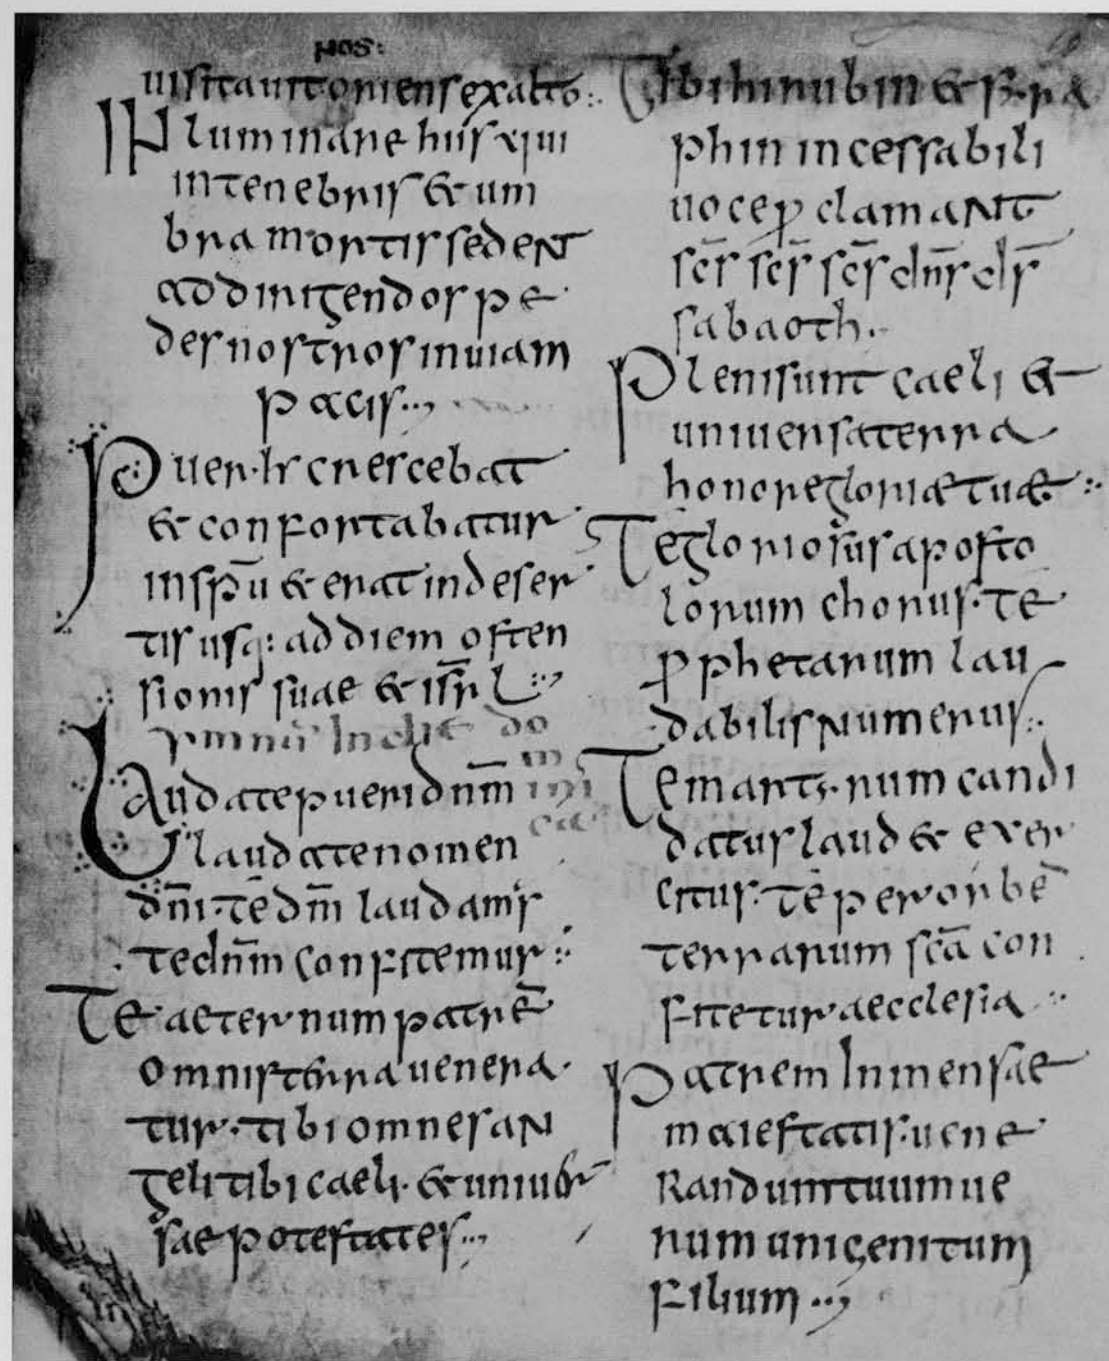 nos:
uisitauit oriens ex alto:.
Inluminare hiis qui
in tenebris & um
bra mortis sedent
ad dirigendos pe
des nostros in uiam
pacis..,
Puer h̄ crescebat
& confortabatur
in sp̄u & erat in deser
tis usq: ad diem osten
sionis suae & isr̄l:.,
Laudate pueri dnm̄
laudate nomen
dn̄i. tē dm̄ laudams
te dnm̄ confitemur:.
Te aeternum patrē
omnis terra uenera
tur. tibi omnes an
geli tibi caeli. & uniuer
sae potestates..,
Tibi hirubin & s̄.ra
phin incessabili
uoce ꝓclamant
sc̄s sc̄s sc̄s dn̄s ds̄
sabaoth.
Pleni sunt caeli &
uniuersa terra
honore gloriæ tuæ:.
Te gloriosus aposto
lorum chorus. Te
ꝓphetarum lau
dabilis numerus:.
Te martyrum candi
datus laud& exer
citus. Te per orbē
terrarum scā con
fitetur aecclesia:.
Patrem inmensae
maiestatis. uene
randum tuum ue
rum unigenitum
filium..,